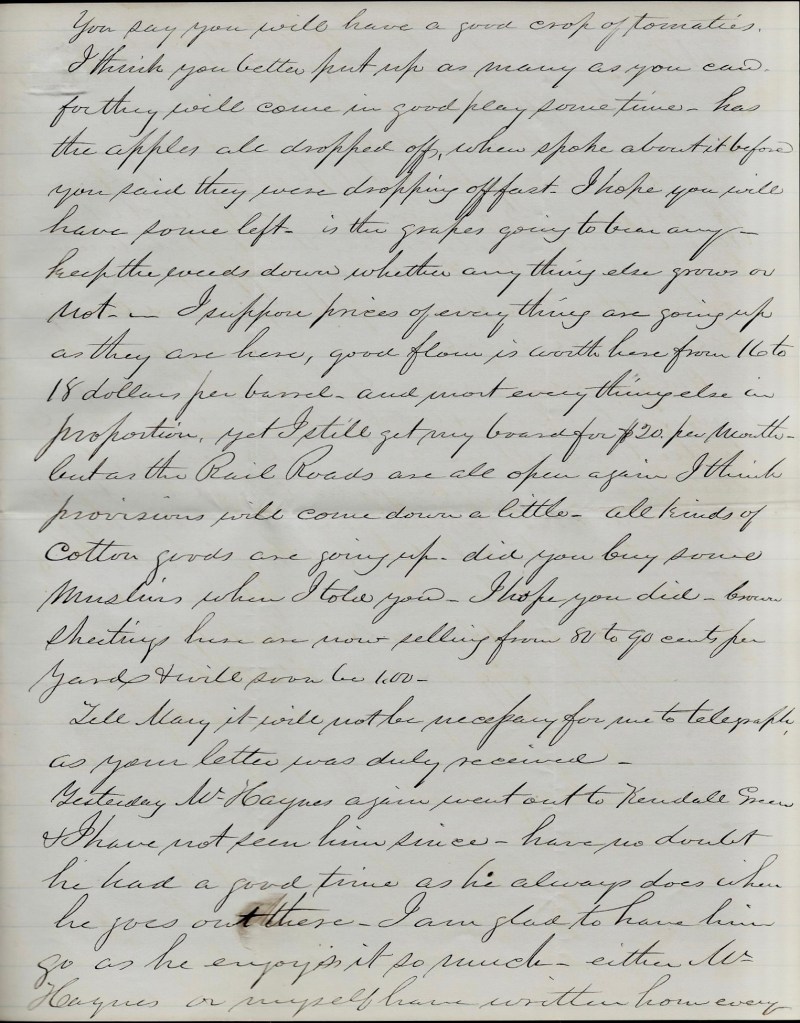 You say you will have a good crop of tomaties.
I think you better put up as many as you can.
for they will come in good play some time - has
the apples all dropped off, when spoke about it before
you said they were dropping off fast - I hope you will
have some left - is the grapes going to bear any -
keep the weeds down whether any thing else grows or
not - I suppose prices of everything are going up
as they are here, good flour is worth here from 16 to
18 dollars per barrel - and most everything else in
proportion, yet I still get my board for $20. per Month -
but as the Rail Roads are all open again I think
provisions will come down a little - all kinds of
Cotton goods are going up - did you buy some
Muslins when I told you - I hope you did - brown
sheetings here are now selling from 80 to 90 cents per
Yard & will soon be 1.00 -
Tell Mary it will not be necessary for me to telegraph,
as your letter was duly received -
Yesterday Mr Haynes again went out to Kendall Green
& I have not seen him since - have no doubt
he had a good time as he always does when
he goes out there - I am glad to have him
go as he enjoys it so much - either Mr
Haynes or myself have written home every